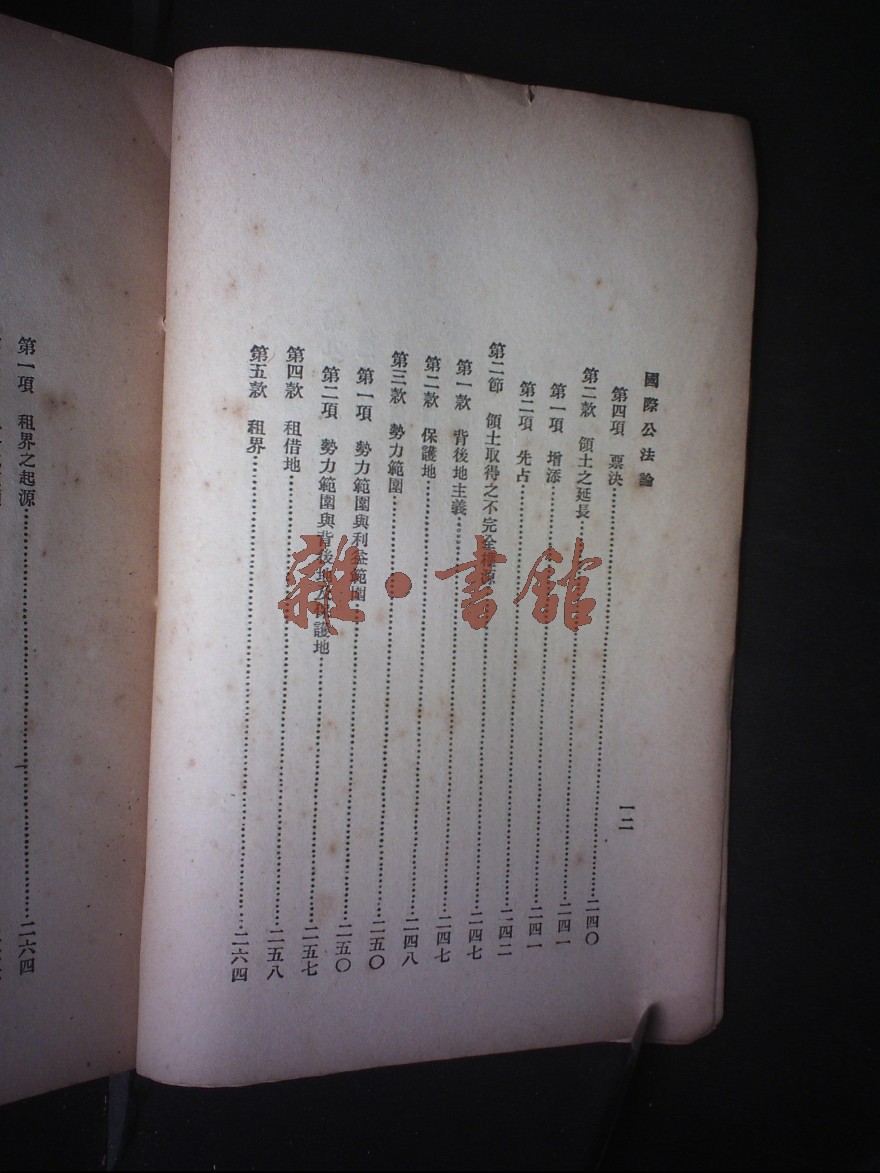 國際公法論
一二
第四項 票決…二四〇
第二款 領土之延長…二四一
第一項 增添…二四一
第二項 先占…二四二
第二節 領土取得之不完全權源…二四七
第一款 背後地主義…二四七
第二款 保護地…二四八
第三款 勢力範圍…二五〇
第一項 勢力範圍與利益範圍…二五〇
第二項 勢力範圍與背後地及保護地…二五七
第四款 租借地…二五八
第五款 租界…二六四
第一項 租界之起源…二六四
雜·書館